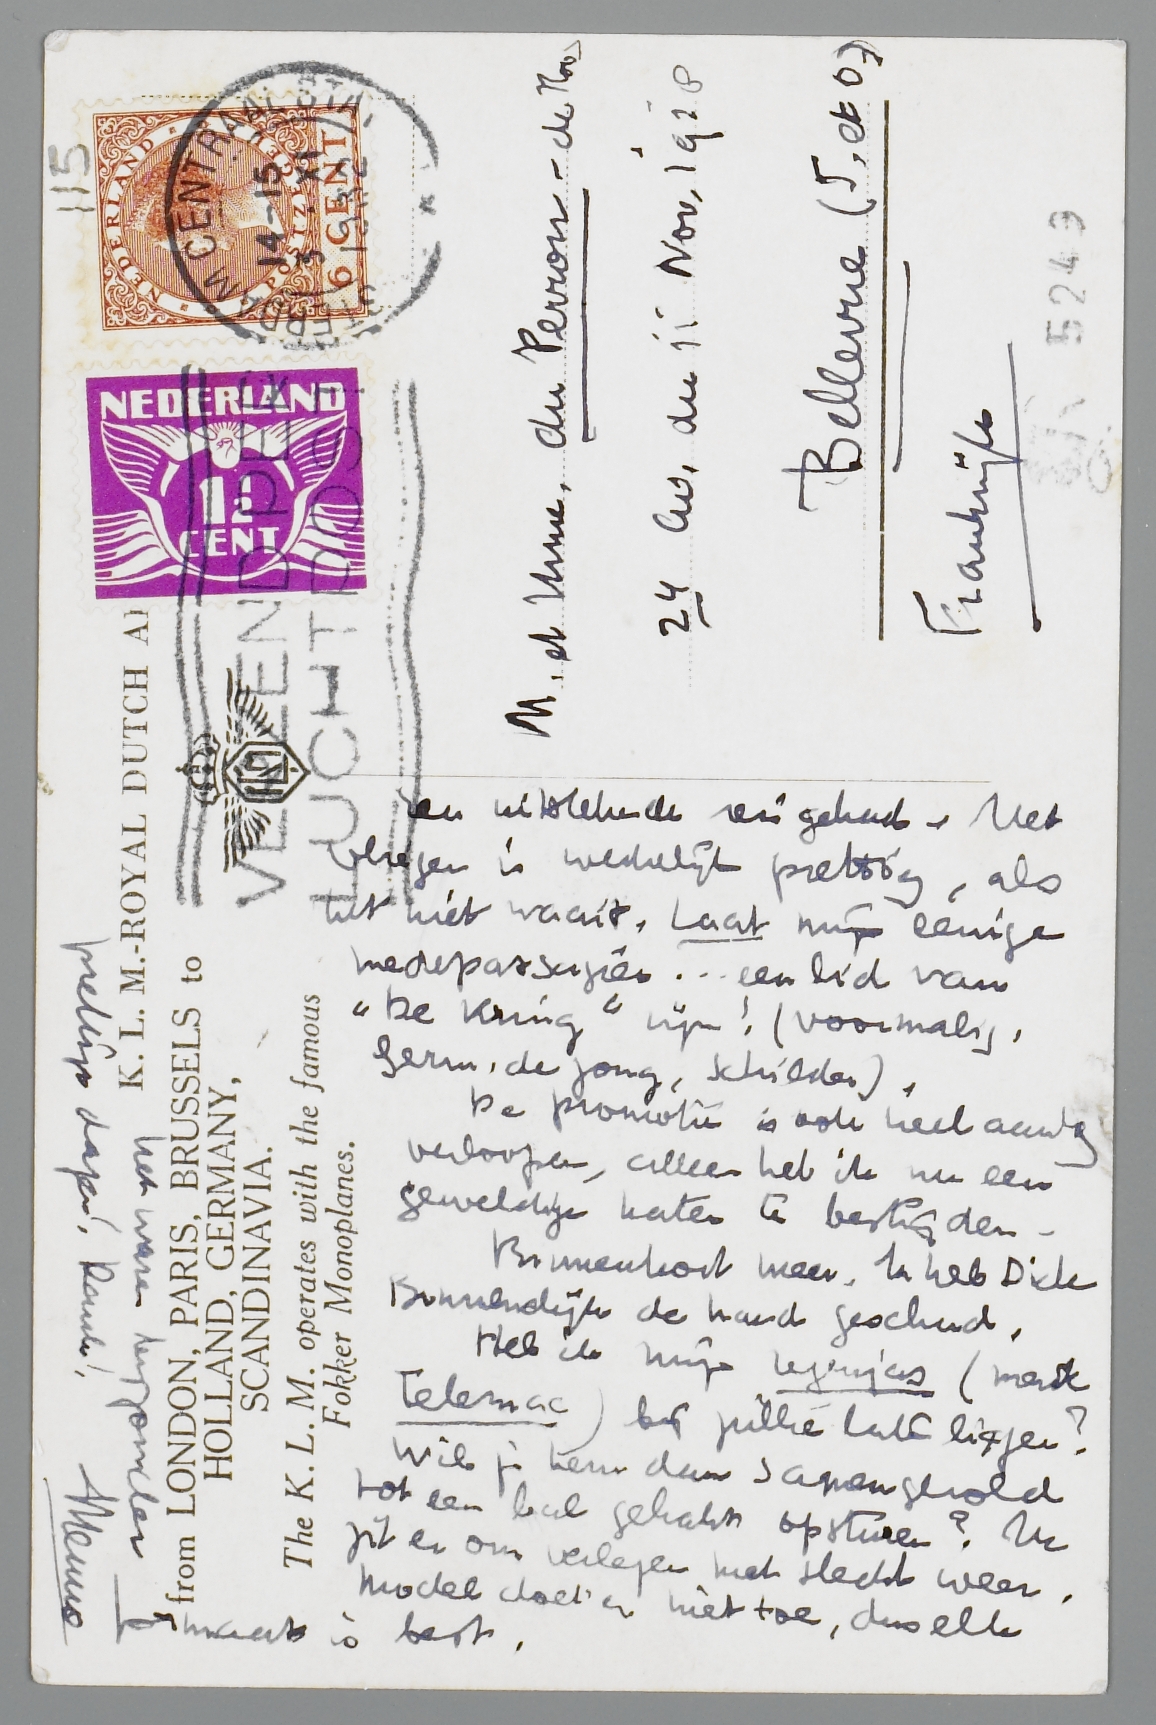 115
NEDERLAND
POSTZEGEL
6 CENT
CENTRAAL STA.
14-15
3 XI
1932
NEDERLAND
1½
CENT
LUCHTPOST
M. et Mme. du Perron - de Roos
24 Av. du 11 Nov. 1928
Bellevue (S. et O.)
Frankrijk
5249
K. L. M.-ROYAL DUTCH AI
from LONDON, PARIS, BRUSSELS to
HOLLAND, GERMANY,
SCANDINAVIA.
The K. L. M. operates with the famous
Fokker Monoplanes.
een uitstekende reis gehad. Het
vliegen is werkelijk prettig, als
het niet waait. Laat mijn eenige
medepassagier ... een lid van
"De Kring" zijn! (voormalig,
Germ. de Jong, schilder).
De promotie is ook heel aardig
verlopen, alleen heb ik nu een
geweldige kater te bestrijden.
Binnenkort meer. Ik heb Dick
Binnendijk de hand geschud.
Heb ik mijn regenjas (merk
Telemac) bij jullie laten liggen?
Wil je hem dan samengerold
tot een bal gehakt opsturen? Ik
zit er om verlegen met slecht weer.
Model doet er niet toe, dezelfde
maat is best.
Het waren bijzonder
prettige dagen! Dank!
Menno